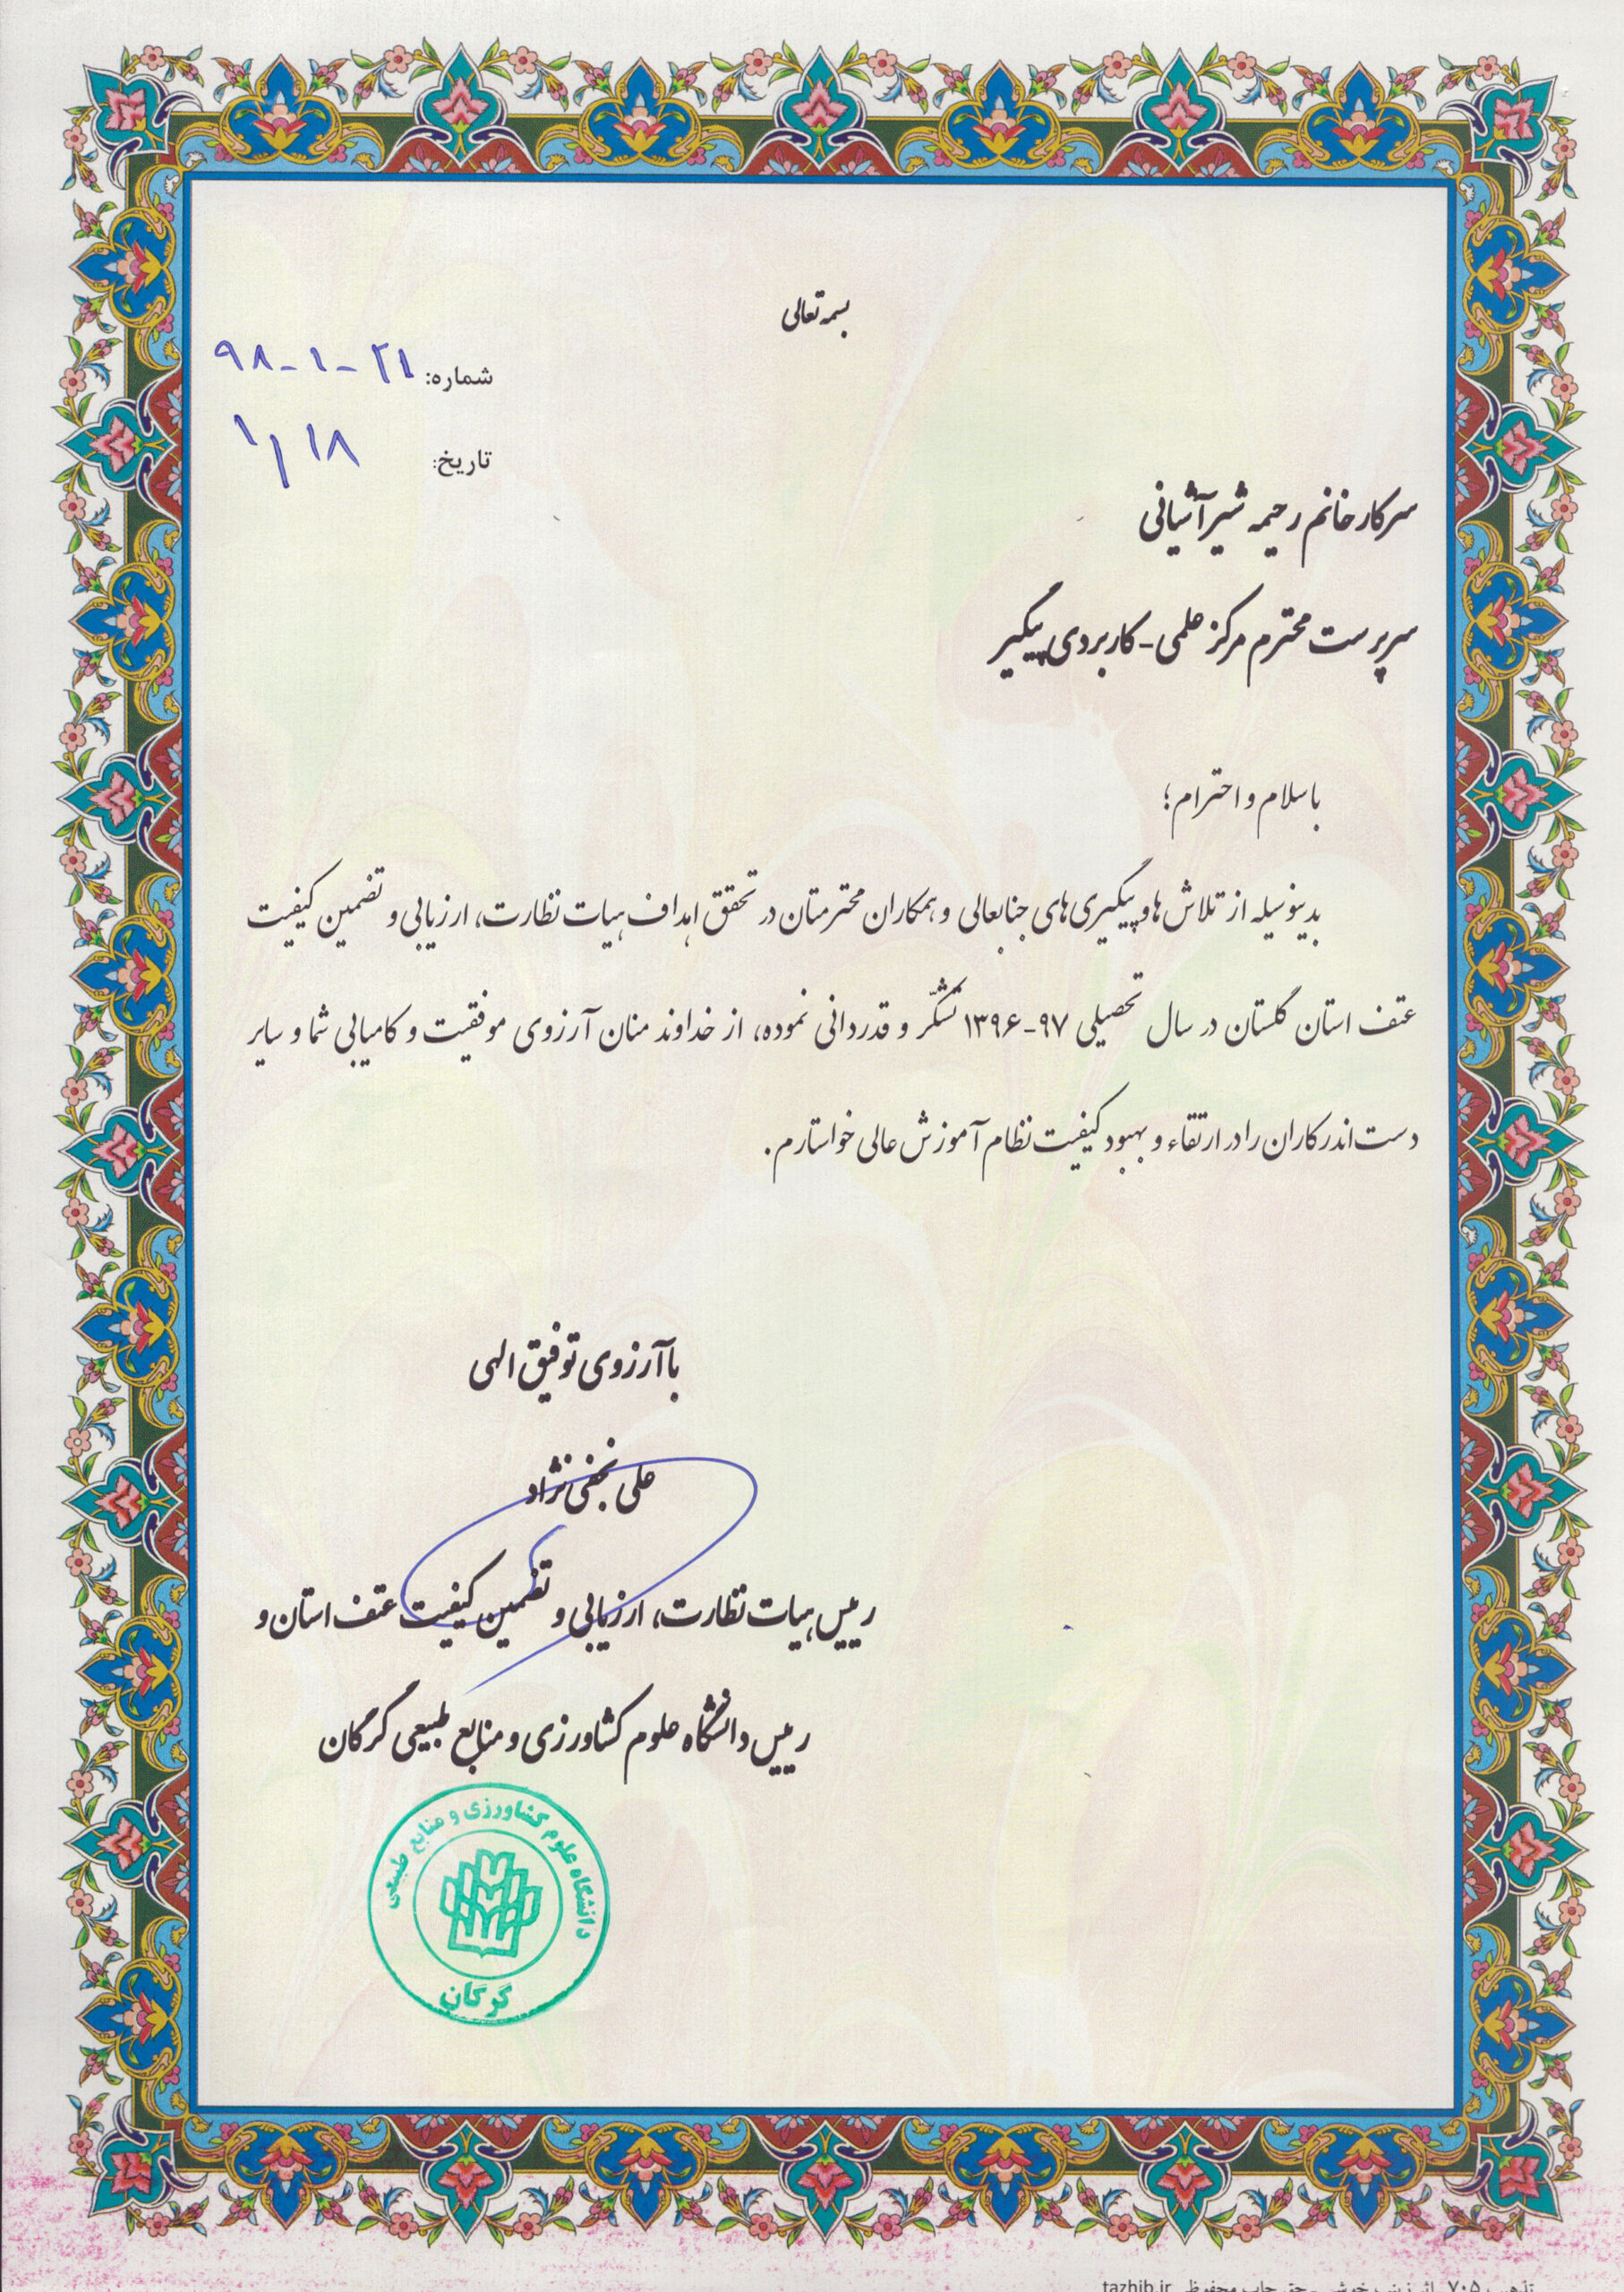 بسمه تعالی
شماره: ۲۱-۱-۹۸
تاریخ: ۱/۱۸
سرکار خانم رحیمه شیرآشیانی
سرپرست محترم مرکز علمی-کاربردی پیگیر
باسلام و احترام؛
بدینوسیله از تلاش ها و پیگیری های جنابعالی و همکاران محترمتان در تحقق اهداف هیات نظارت، ارزیابی و تضمین کیفیت
عتف استان گلستان در سال تحصیلی ۹۷-۱۳۹۶ تشکّر و قدردانی نموده، از خداوند منان آرزوی موفقیت و کامیابی شما و سایر
دست اندرکاران را در ارتقاء و بهبود کیفیت نظام آموزش عالی خواستارم.
با آرزوی توفیق الهی
علی نجفی نژاد
رییس هیات نظارت، ارزیابی و تضمین کیفیت عتف استان و
رییس دانشگاه علوم کشاورزی و منابع طبیعی گرگان
دانشگاه علوم کشاورزی و منابع طبیعی
گرگان
tazhib.ir